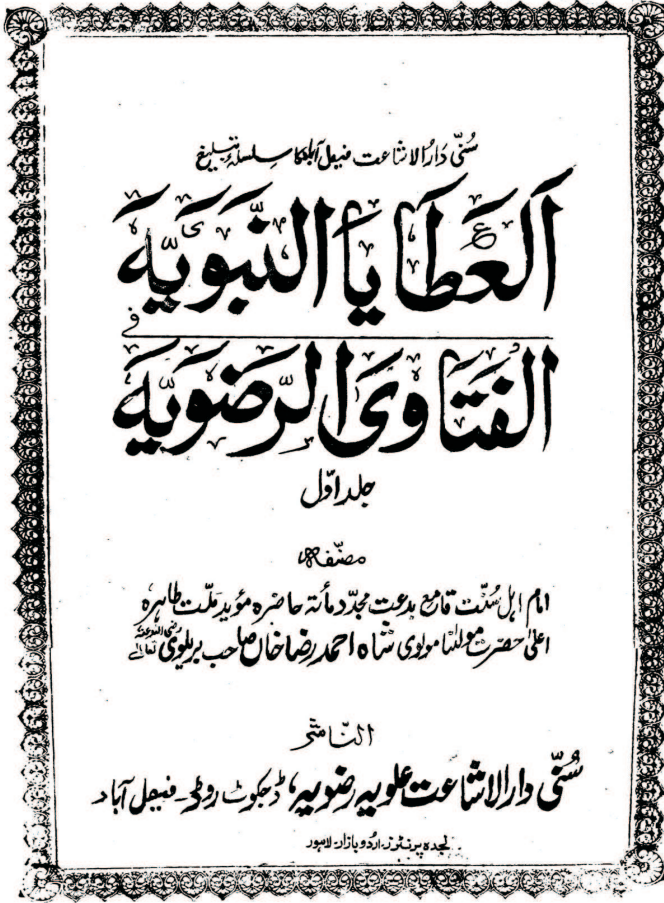 سُنّی دارُالاشاعت فیصل آبادکا سلسلۂ تبلیغ
اَلعَطَایَا النَّبَوِیَّہ
فی
الفَتَاوَی الرَّضَوِیَّہ
جلد اوّل
مصنّفہ
امام اہل سُنّت قامع بدعت مجدّد مأتہ حاضرہ مؤید ملّت طاہرہ
اعلیٰ حضرت مولٰنا مولوی شاہ احمد رضا خاں صاحب بریلوی رضی اللہ عنہ تعالےٰ
الناشر
سُنّی دارالاشاعت علویہ رضویہ، ڈجکوٹ روڈ۔ فیصل آباد
پرنٹرز۔ اردو بازار۔ لاہور